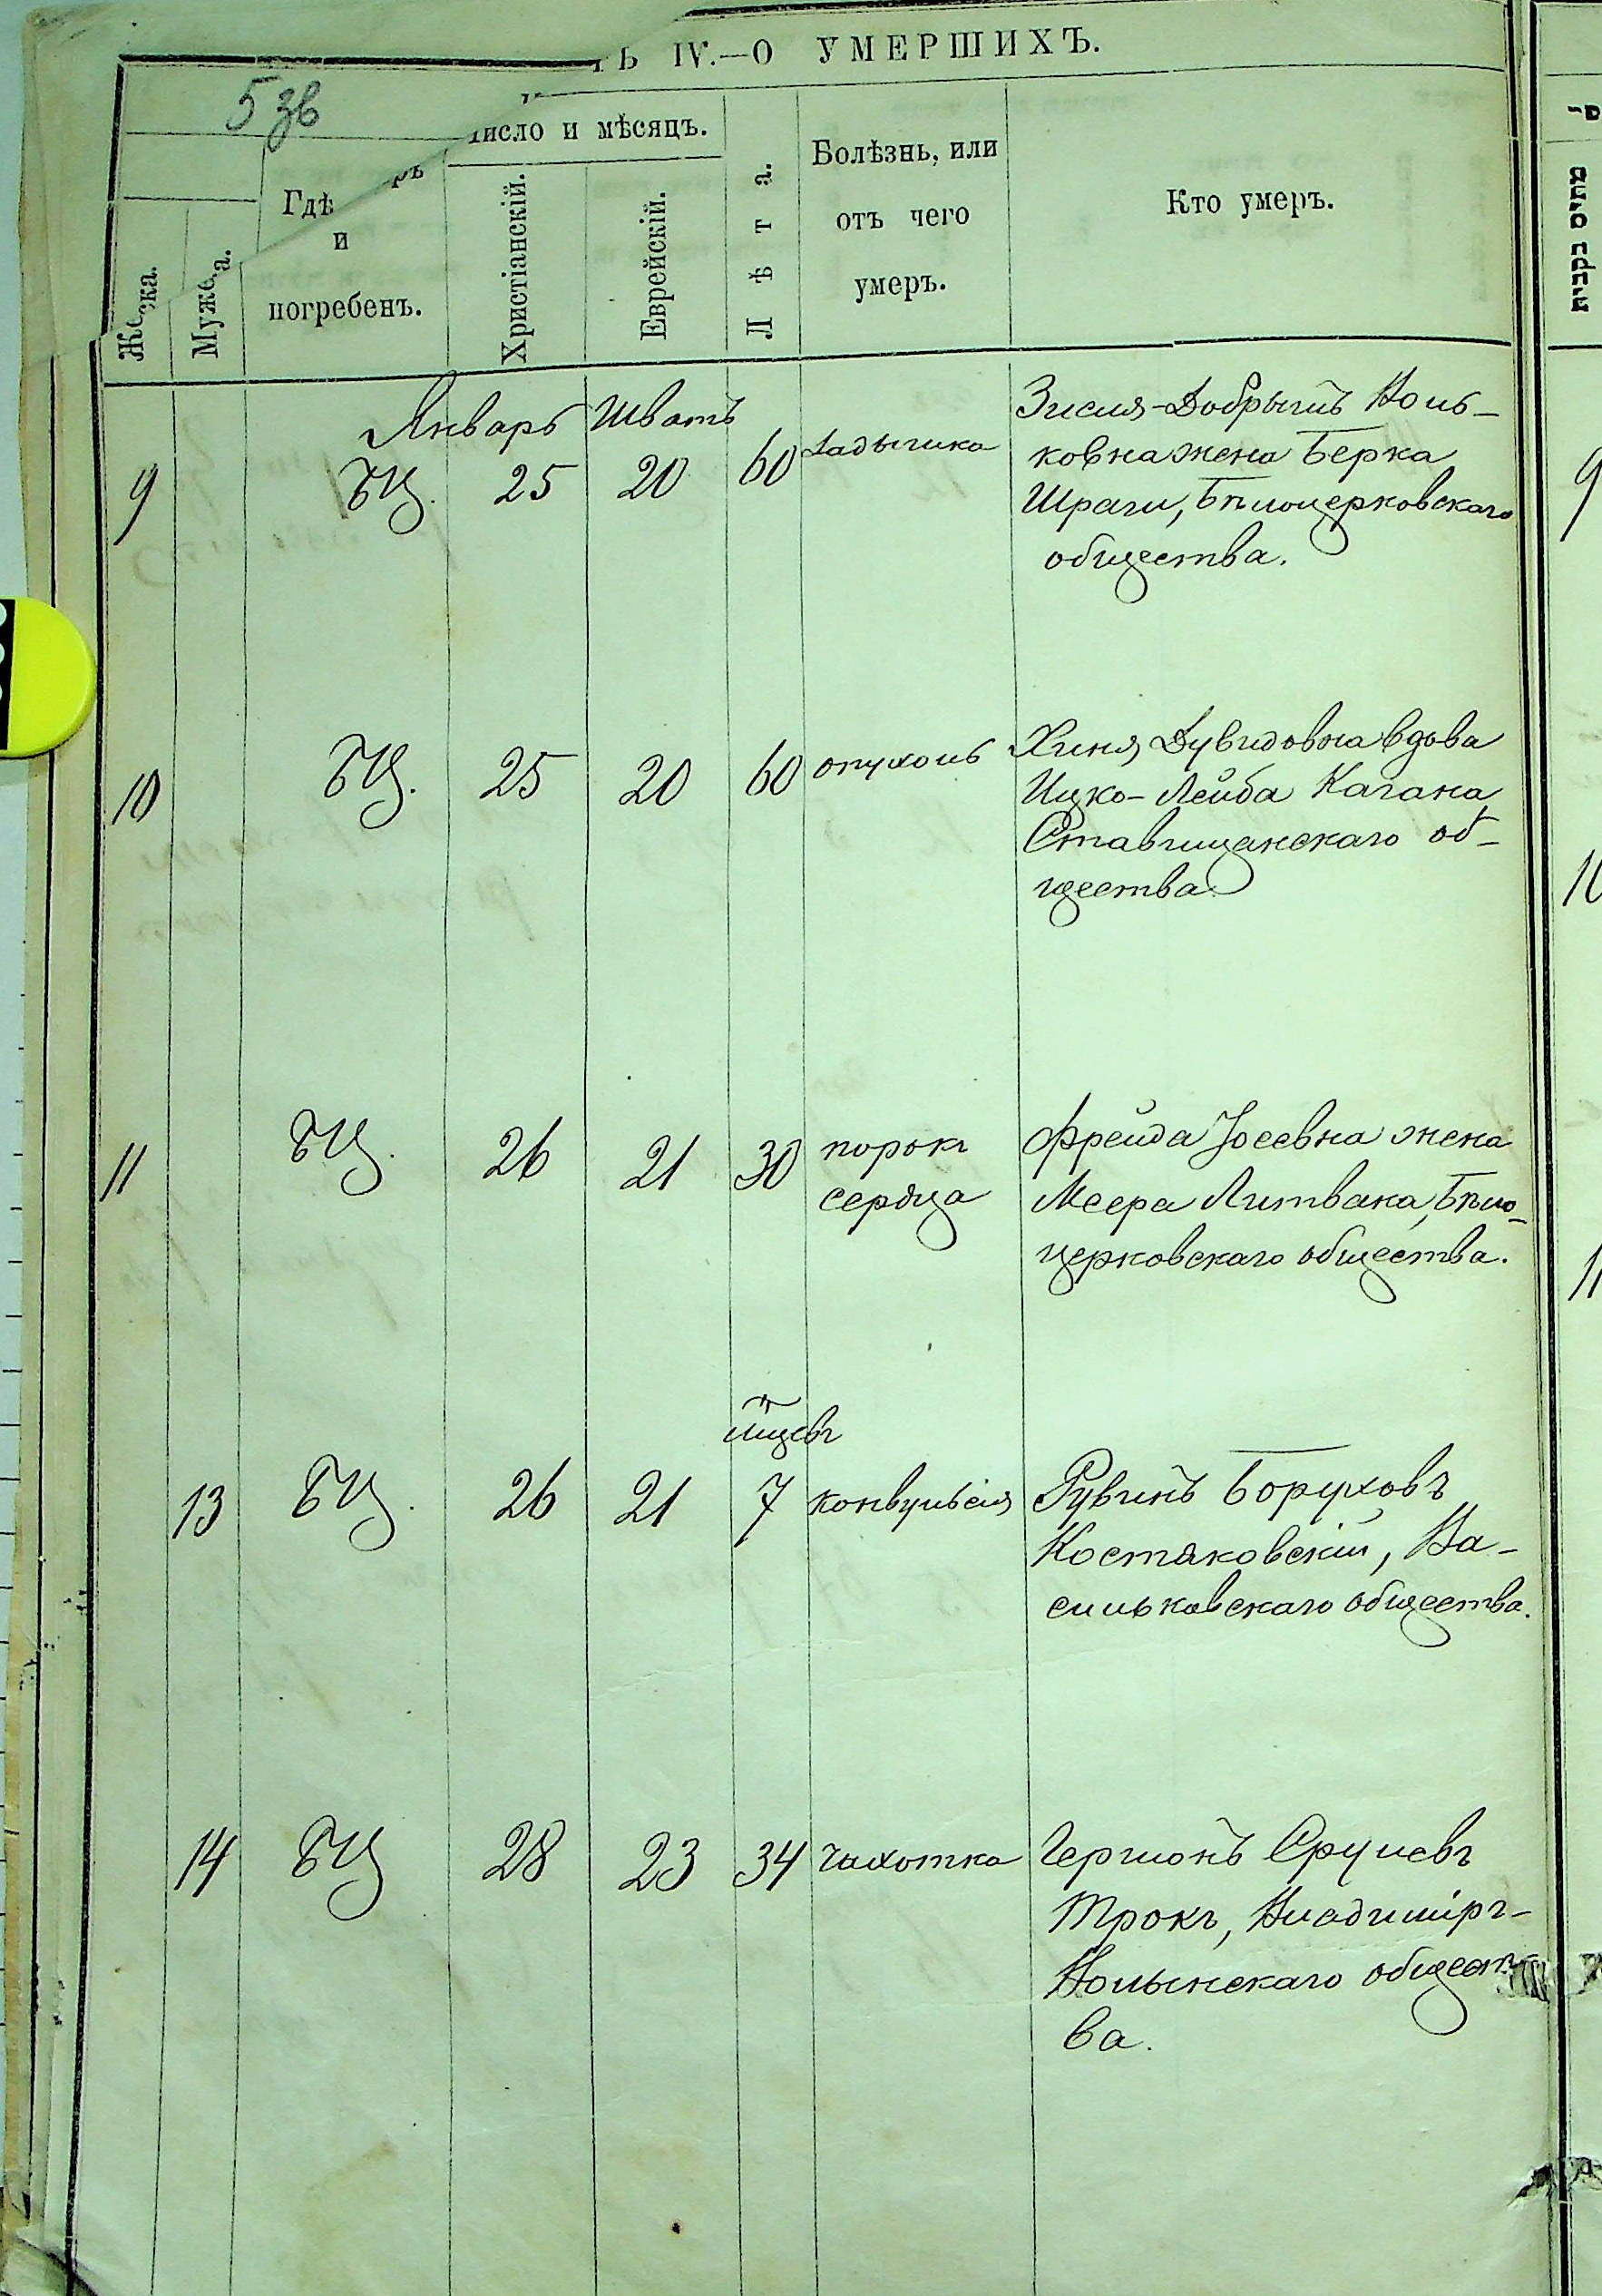 IV.—О УМЕРШИХЪ.
5 зв
число и мѣсяцъ.
Женска.
Мужска.
Гдѣ
и
погребенъ.
Христіанскій.
Еврейскій.
Лѣта.
Болѣзнь, или
отъ чего
умеръ.
Кто умеръ.
Январь Шватъ
9 БЦ. 25 20 60
Зисля-Добрышъ Воль-
ковна жена Берка
Шраги, Бѣлоцерковскаго
общества.
10 БЦ. 25 20 60 опухоль
Хиня Дувидовна вдова
Ицко-Лейба Кагана
Ставищанскаго об-
щества
11 БЦ. 26 21 30 порокъ
сердца
Фрейда Іосевна жена
Меера Литвака, Бѣло-
церковскаго общества.
13 БЦ. 26 21 7 конвульсія
Рувинъ Боруховъ
Костяковскій, Ва-
сильковскаго общества.
14 БЦ 28 23 34 чахотка
Гершонъ Срулевъ
Трокъ, Владиміръ-
Волынскаго общест
ва.
9
10
11